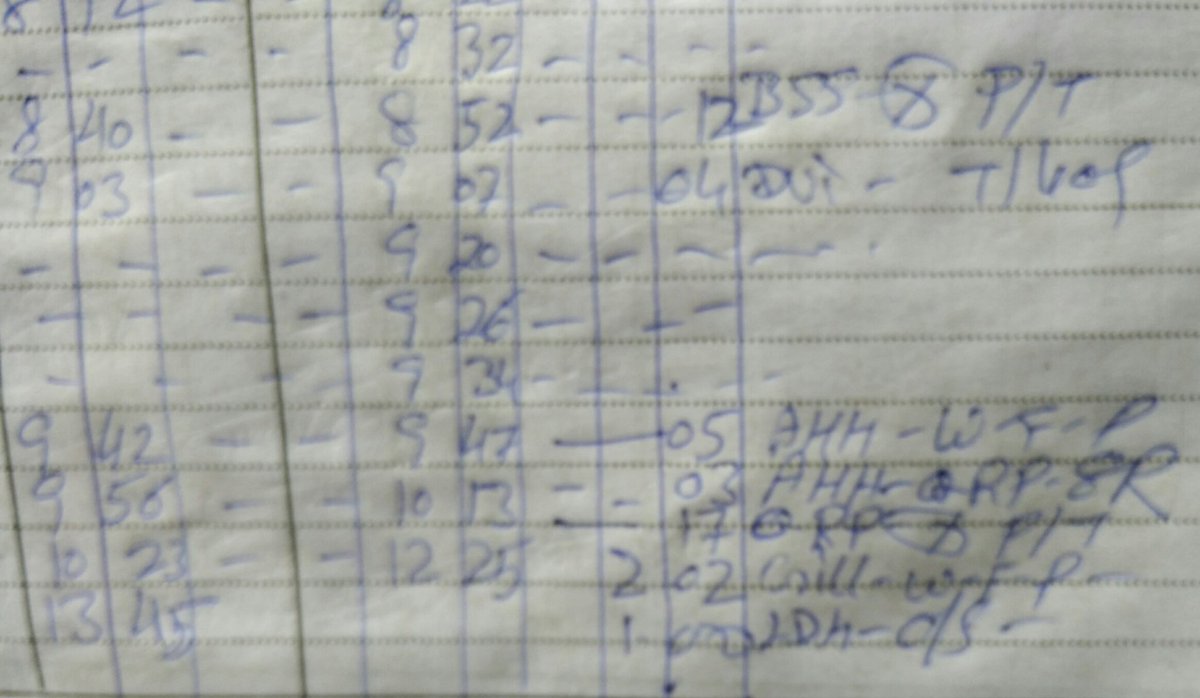 - - - - 8 32 - - - -
8 40 - - 8 52 - - - 12 BSS - 8 P/T
9 03 - - 9 07 - - 04 T/
- - - - 9 20 - - - -
- - - - 9 26 - - -
- - - - 9 34 - - - -
9 42 - - 9 47 - 05 AHH - W-F-P
9 56 - - 10 13 - - 03 AHH-GRP-
- 17 GRP P/T
10 23 - - 12 25 2 02 W-F-P-
13 45 1 LDH - C/S -